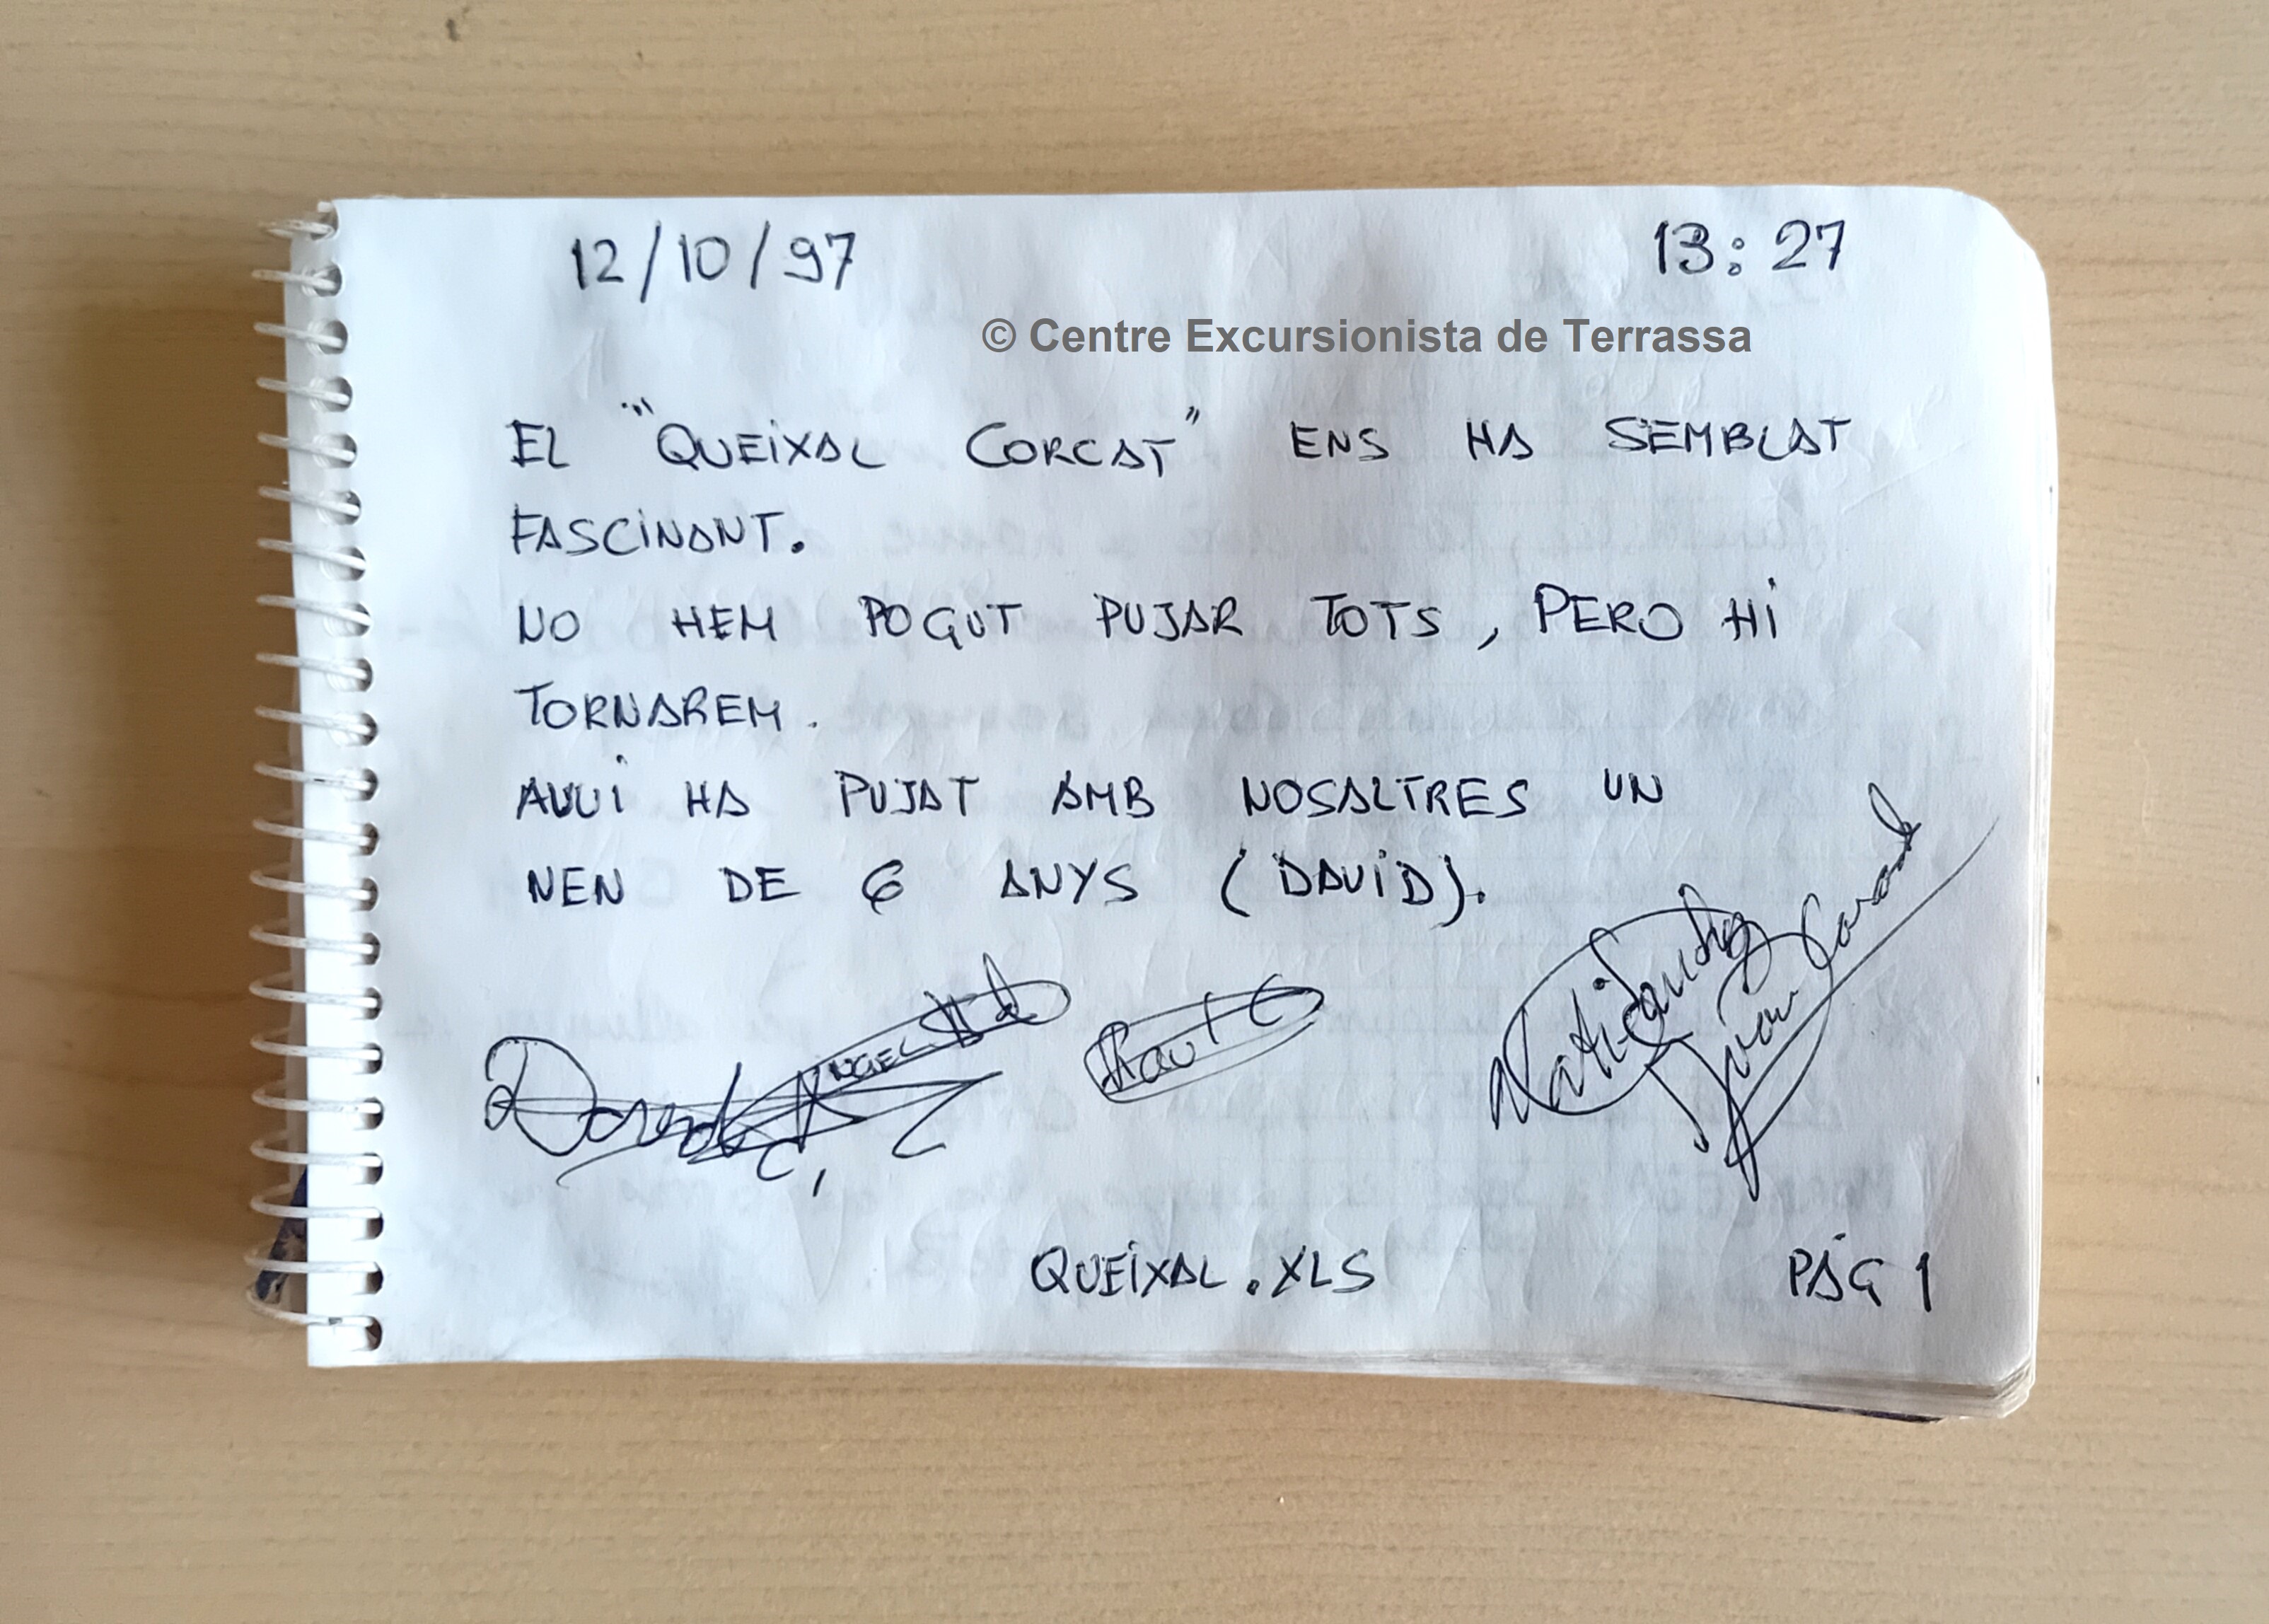 12/10/97 13:27
© Centre Excursionista de Terrassa
EL "QUEIXAL CORCAT" ENS HA SEMBLAT
FASCINANT.
NO HEM POGUT PUJAR TOTS, PERO HI
TORNAREM.
AVUI HA PUJAT AMB NOSALTRES UN
NEN DE 6 ANYS (DAVID).
ANGEL
Raul
QUEIXAL.XLS PÀG 1